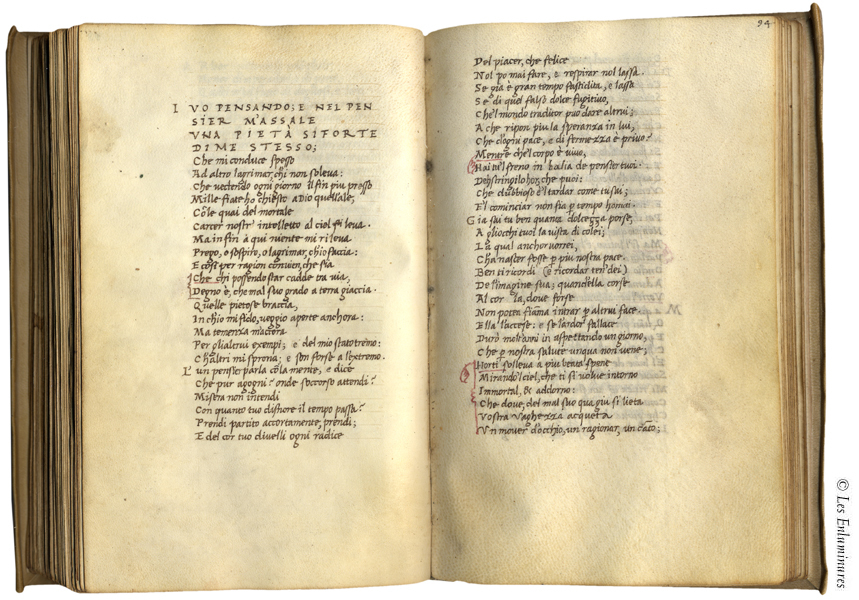 I VO PENSANDO; E NEL PEN
SIER M'ASSALE
VNA PIETÀ SI FORTE
DI ME STESSO;
Che mi conduce spesso
Ad altro lagrimar, chi non soleva:
Che vedendo ogni giorno il fin piu presso
Mille fiate ho chiesto a Dio quell'ale,
Cõ le quai del mortale
Carcer nostr' intelletto al ciel si leva.
Ma in fin à qui niente mi rileva
Prego, o sospiro, o lagrimar, ch'io faccia:
E così per ragion convien, che sia
Che chi possendo star cadde tra via,
Degno è, che mal suo grado a terra giaccia.
Quelle pietose braccia,
In ch'io mi fido, veggio aperte anchora:
Ma temenza m'accora
Per gli altrui exempi; e del mio stato tremo:
Ch'altri mi sprona; e son forse a l'extremo.
L' un pensier parla cõ la mente, e dice
Che pur agogni? onde soccorso attendi?
Misera non intendi
Con quanto tuo disnore il tempo passa?
Prendi partito accortamente, prendi;
E del cor tuo divelli ogni radice
94
Del piacer, che felice
Nol po mai fare, e respirar nol lassa.
Se gia è gran tempo fastidita, e lassa
Se' di quel falso dolce fugitivo,
Che'l mondo traditor può dare altrui;
A che ripon piu la speranza in lui,
Che d'ogni pace, e di fermezza è privo?
Mentre che'l corpo è vivo,
Hai tu'l freno in bailia de pensier tuoi.
Deh stringilo hor, che puoi:
Che dubbioso è'l tardar come tu sai;
E'l cominciar non fia p tempo homai.
Gia sai tu ben quanta dolcezza porse,
A gliocchi tuoi la vista di colei;
La qual anchor vorrei,
Ch'a nascer fosse p piu nostra pace.
Ben ti ricordi (e ricordar ten' dei)
De l'imagine sua; quand'ella corse
Al cor là, dove forse
Non potea fiãma intrar p altrui face.
Ella l'accese: e se l'ardor fallace
Durò molt'anni in aspettando un giorno,
Che p nostra salute unqua non vene;
Hor ti solleva a piu beata spene
Mirando'l ciel, che ti si volve intorno
Immortal, & addorno:
Che dove, del mal suo qua giu si lieta
Vostra vaghezza acqueta
Un mover d'occhio, un ragionar, un cãto;
© Les Enluminures